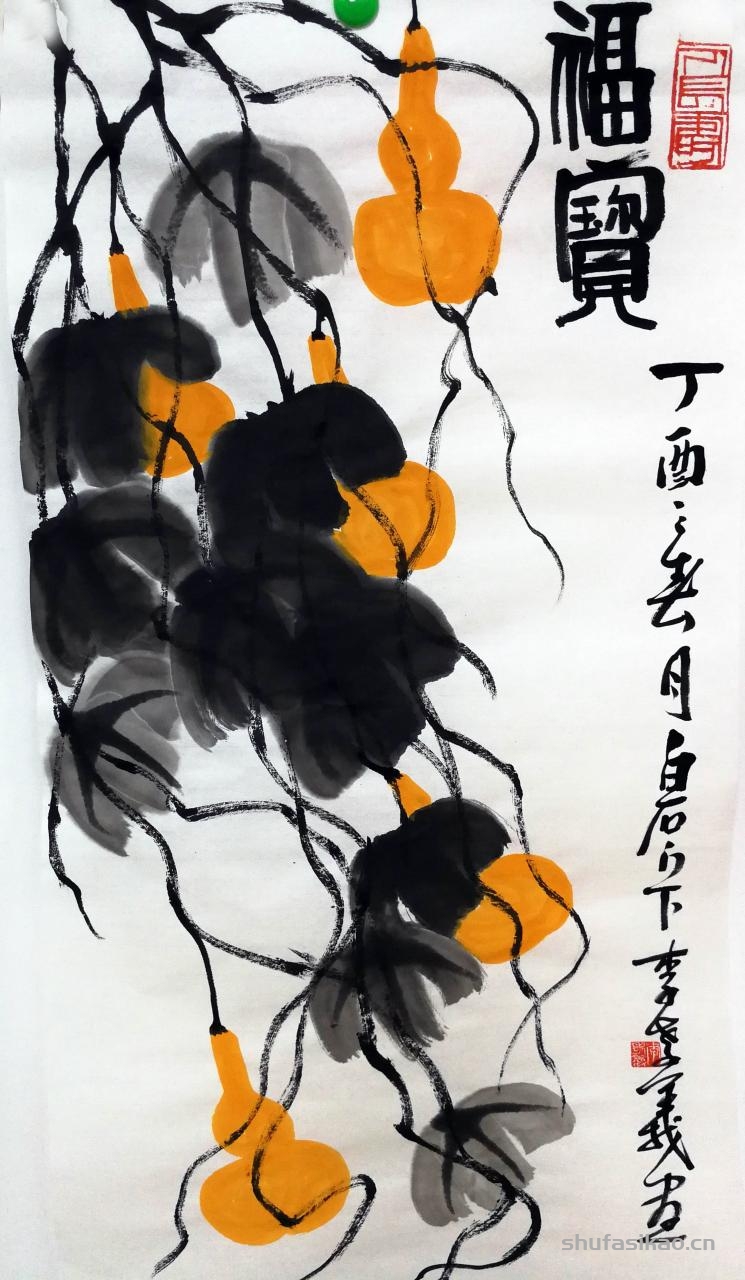 福寶
丁酉之春月白石门下李老義画
shufasikao.cn